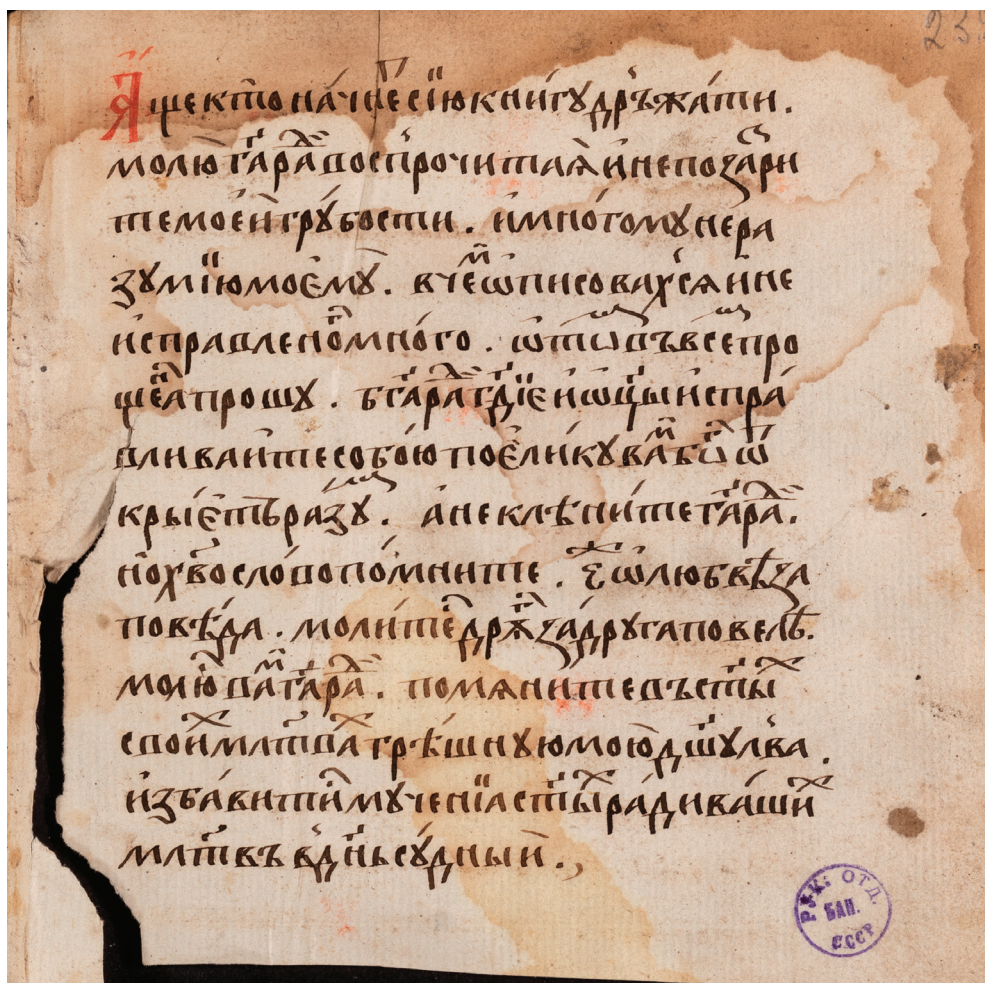 Аще кто начнеⷮ сїю книгу дръжати.
молю гⷭ҇а раⷣ воспрочитая и не позаⷥри
те моеи грубости. и многому нера
зумїю моемꙋ. в чеⷨ ѡписовахся и не
исправленоⷨ много. ѿ ѿ въ все про
щеⷩ҇їа прошꙋ. бг҃а раⷣ гдⷭ҇їе и ѡц҃ы испра
вливаите собою поелику ваⷨ бг҃ъ ѿ
крыетъ разꙋⷨ. а не клѣните гⷭ҇а раⷣ.
но хⷭ҇во слово помните. еⷤ ѡ любвѣ за
повѣда. молите дрꙋⷢ за друга повелѣ.
молю ваⷨ гⷭ҇а раⷣ. помяните въ ст҃ыⷯ
своиⷯ млт҃ваⷯ грѣшную мою дш҃у лⷭ҇ва
избавити мученїа ст҃ыⷯ ради вашиⷯ
млт҃въ в дн҃ь судныи.
РУК. ОТД.
БАН.
СССР